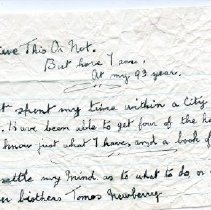 ieve This Or Not.
But here I am.
At my 93 year.
t spent my time within a City
. Is've been able to get four of the he
know just what I haves and a book of
settle my mind as to what to do, or
er brothers Tomos Newberry